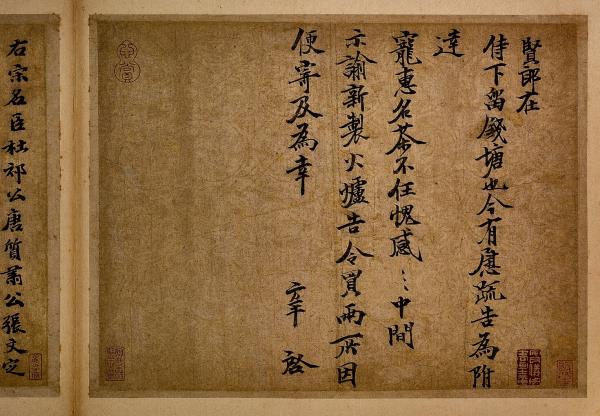 賢郎在
侍下留錢塘也今有慰疏告為附
達
寵惠名茶不任愧感〻中間
示諭新製火爐告令買兩所因
便寄及為幸
啓
右宗名臣杜祁公唐質肅公張文定